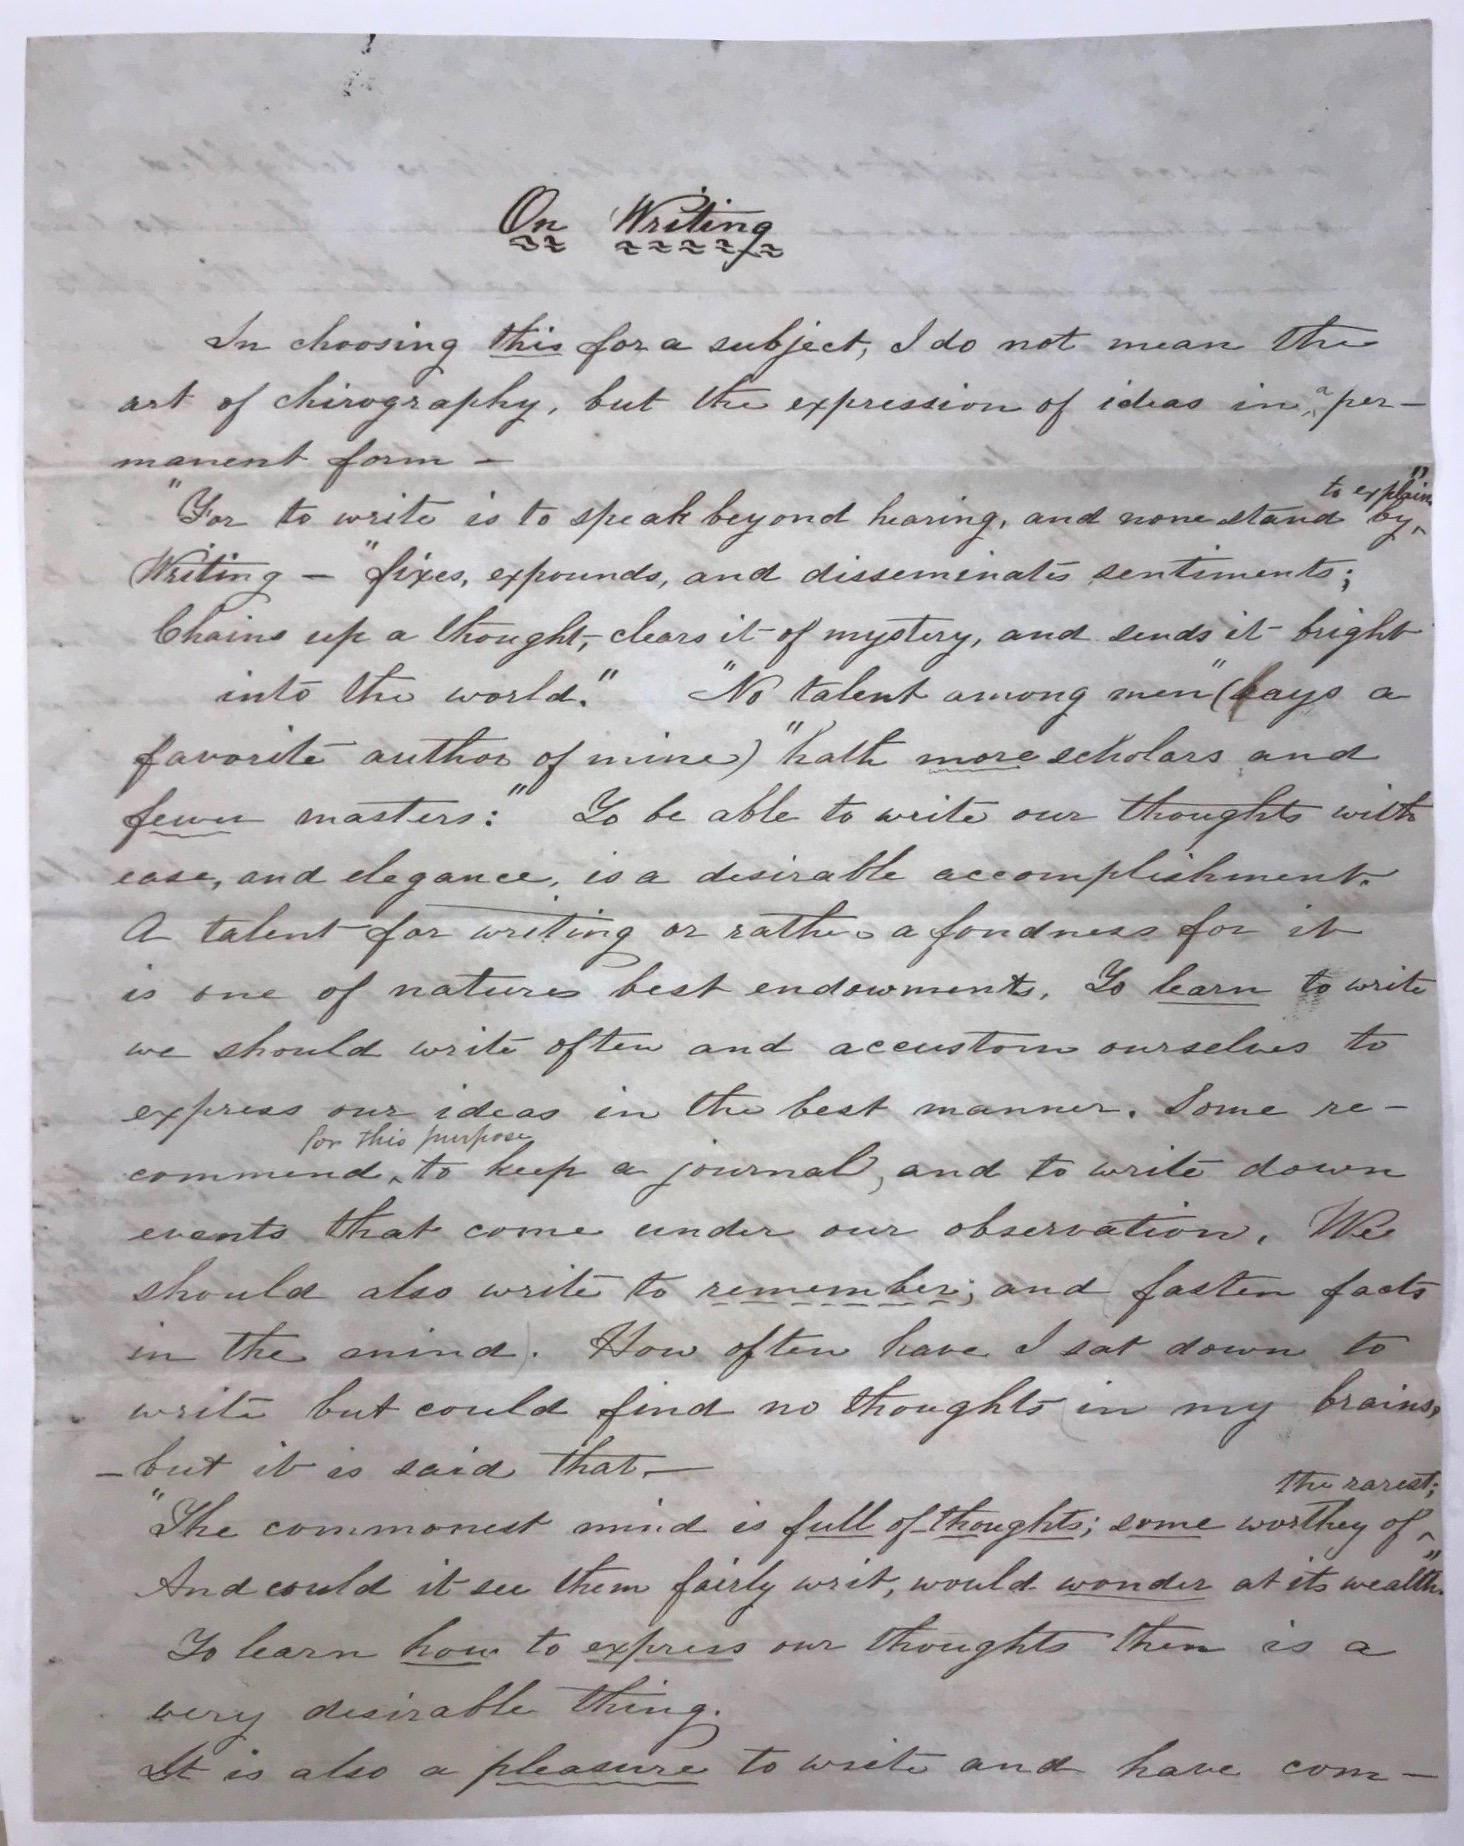 On Writing
In choosing this for a subject, I do not mean the
art of chirography, but the expression of ideas in a per-
manent form -
to explain"
"For to write is to speak beyond hearing, and none stand by,
Writing - "fixes, expounds, and disseminates sentiments;
Chains up a thought, clears it of mystery, and sends it bright
into the world." "No talent among men" (says a
favorite author of mine) "hath more scholars and
fewer masters:" To be able to write our thoughts with
ease, and elegance, is a desirable accomplishment.
A talent for writing or rather a fondness for it
is one of natures best endowments. To learn to write
we should write often and accustom ourselves to
express our ideas in the best manner. Some re-
for this purpose
commend, to keep a journal, and to write down
events that come under our observation. We
should also write to remember; and (fasten facts
in the mind). How often have I sat down to
write but could find no thoughts (in my brains,
- but it is said that, -
the rarest;
"The commonest mind is full of thoughts; some worthey of
And could it see them fairly writ, would wonder at its wealth."
To learn how to express our thoughts then is a
very desirable thing.
It is also a pleasure to write and have com-